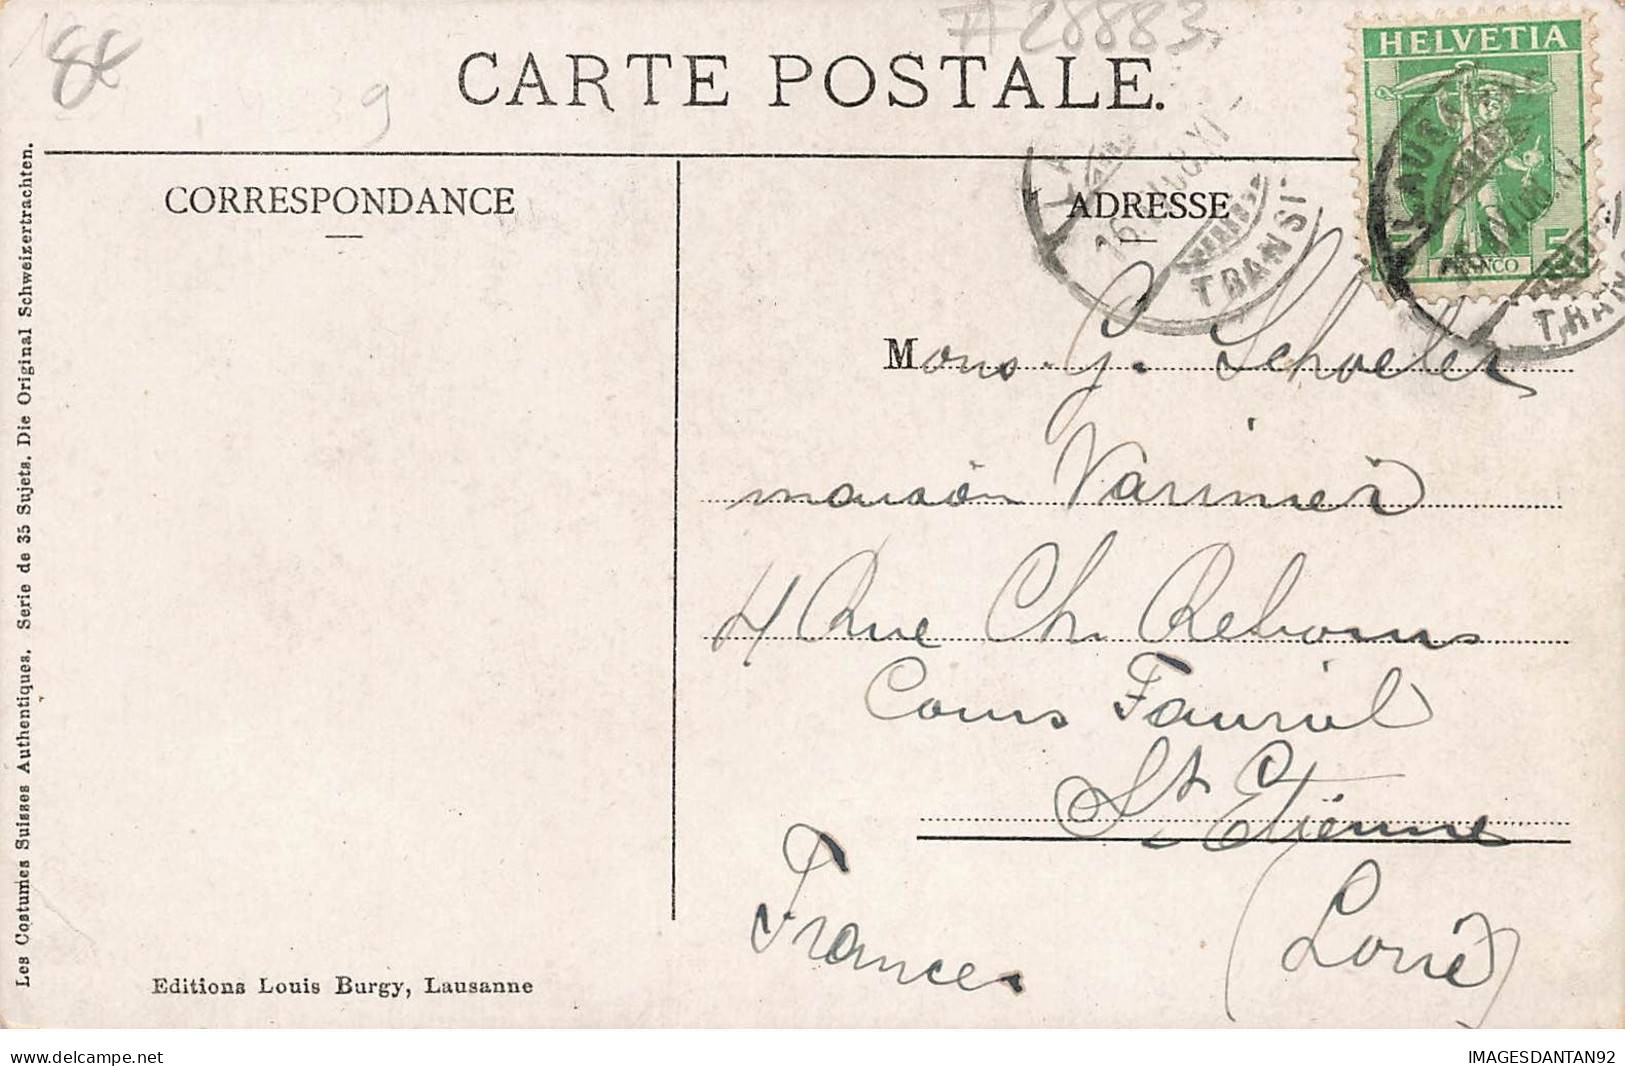 8€
#28883
9
CARTE POSTALE.
HELVETIA
5
FRANCO
CORRESPONDANCE
ADRESSE
LAUSANNE
TRANSIT
Mons. G. Schoeler
maison Varinier
4 Rue Ch. Rebours
Cours Fauriel
St. Etienne
France
(Loire)
Les Costumes Suisses Authentiques. Serie de 35 Sujets. Die Original Schweizertrachten.
Editions Louis Burgy, Lausanne
delcampe.net
IMAGESDANTAN92